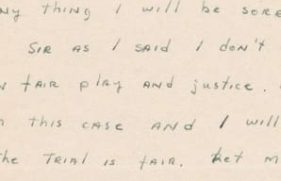 ny thing I will be sore
Sir as I said I don't
fair play and justice.
this case and I will
the trial is fair. Let m